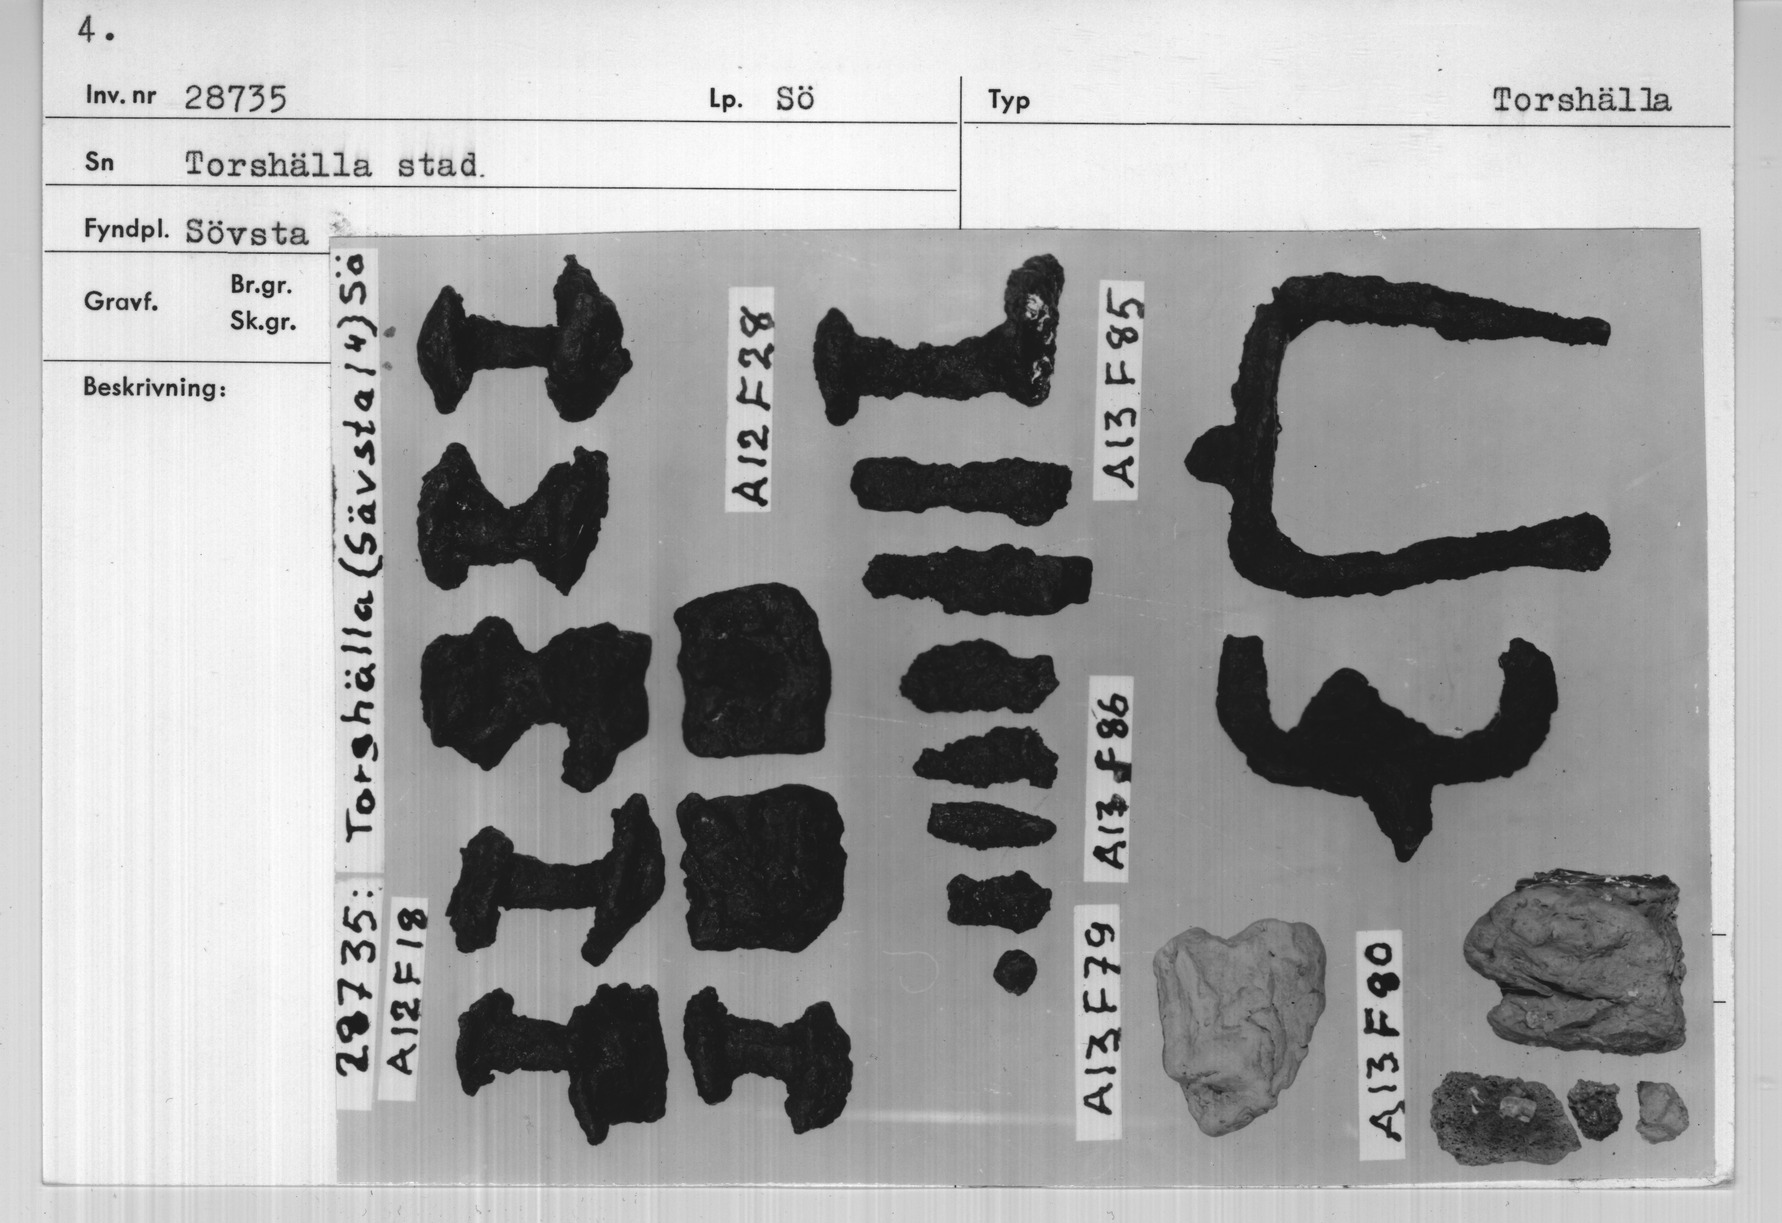 4.
Inv. nr 28735 Lp. Sö Typ Torshälla
Sn Torshälla stad.
Fyndpl. Sövsta
Gravf. Br.gr.
Sk.gr.
Beskrivning:
28735: Torshälla (Sävsta 14) Sö
A12 F18
A12 F28
A13 F85
A13 F86
A13 F79
A13 F80